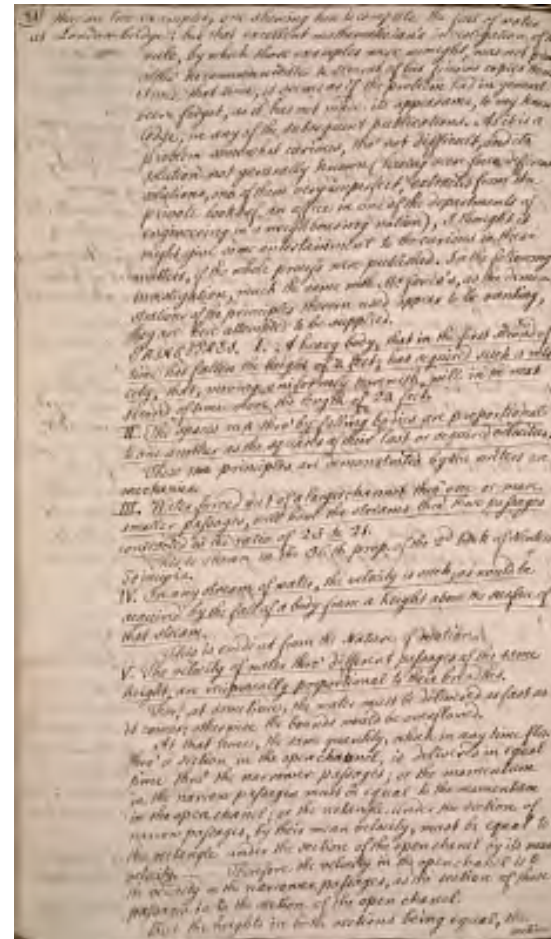 there are two examples, one shewing how to compute the fall of water
at London-bridge; but that excellent mathematician's investigation of the
rule, by which those examples were wrought, was not printed
altho' he communicated to several of his friends copies thereof
since that time, it seems as if the problem had in general
been forgot, as it has not made its appearance, to my know-
ledge, in any of the subsequent publications. As it is a
problem somewhat curious, tho' not difficult, and its
solution not generally known (having seen four different
solutions, one of them very imperfect, extracted from the
private books of an office in one of the departments of
engineering in a neighbouring nation), I thought it
might give some entertainment to the curious in these
matters, if the whole process were published. In the following
investigation, much the same with Mr Jones's, as the demon-
strations of the principles therein used appear to be wanting,
they are here attempted to be supplied.
PRINCIPLES. I. A heavy body, that in the first second of
time has fallen the height of a feet, has acquired such a velo-
city, that, moving uniformly therewith, will in the next
second of time move the length of 2a feet.
II. The spaces run thro' by falling bodies are proportional
to one another as the squares of their last or acquired velocities.
These two principles are demonstrated by the writers on
mechanics.
III. Water forced out of a larger channel thro' one or more
smaller passages, will have the streams thro' those passages
contracted in the ratio of 25 to 21.
This is shewn in the 36th prop. of the 2d book of Newton's
Principia.
IV. In any stream of water, the velocity is such, as would be
acquired by the fall of a body from a height above the surface of
that stream.
This is evident from the Nature of Motion.
V. The velocity of water thro' different passages of the same
height, are reciprocally proportional to their breadths.
For, at some time, the water must be delivered as fast as
it comes; otherwise the bounds would be overflowed.
At that time, the same quantity, which in any time flows
thro' a section in the open channel, is delivered in equal
time thro' the narrower passages; or the momentum
in the narrow passages must be equal to the momentum
in the open chanel; or the rectangle under the section of
narrow passages, by their mean velocity, must be equal to
the rectangle under the section of the open chanel by its mean
velocity. Therefore the velocity in the open chanel is to
the velocity in the narrower passages, as the section of those
passages is to the section of the open chanel.
But the heights in both sections being equal, the